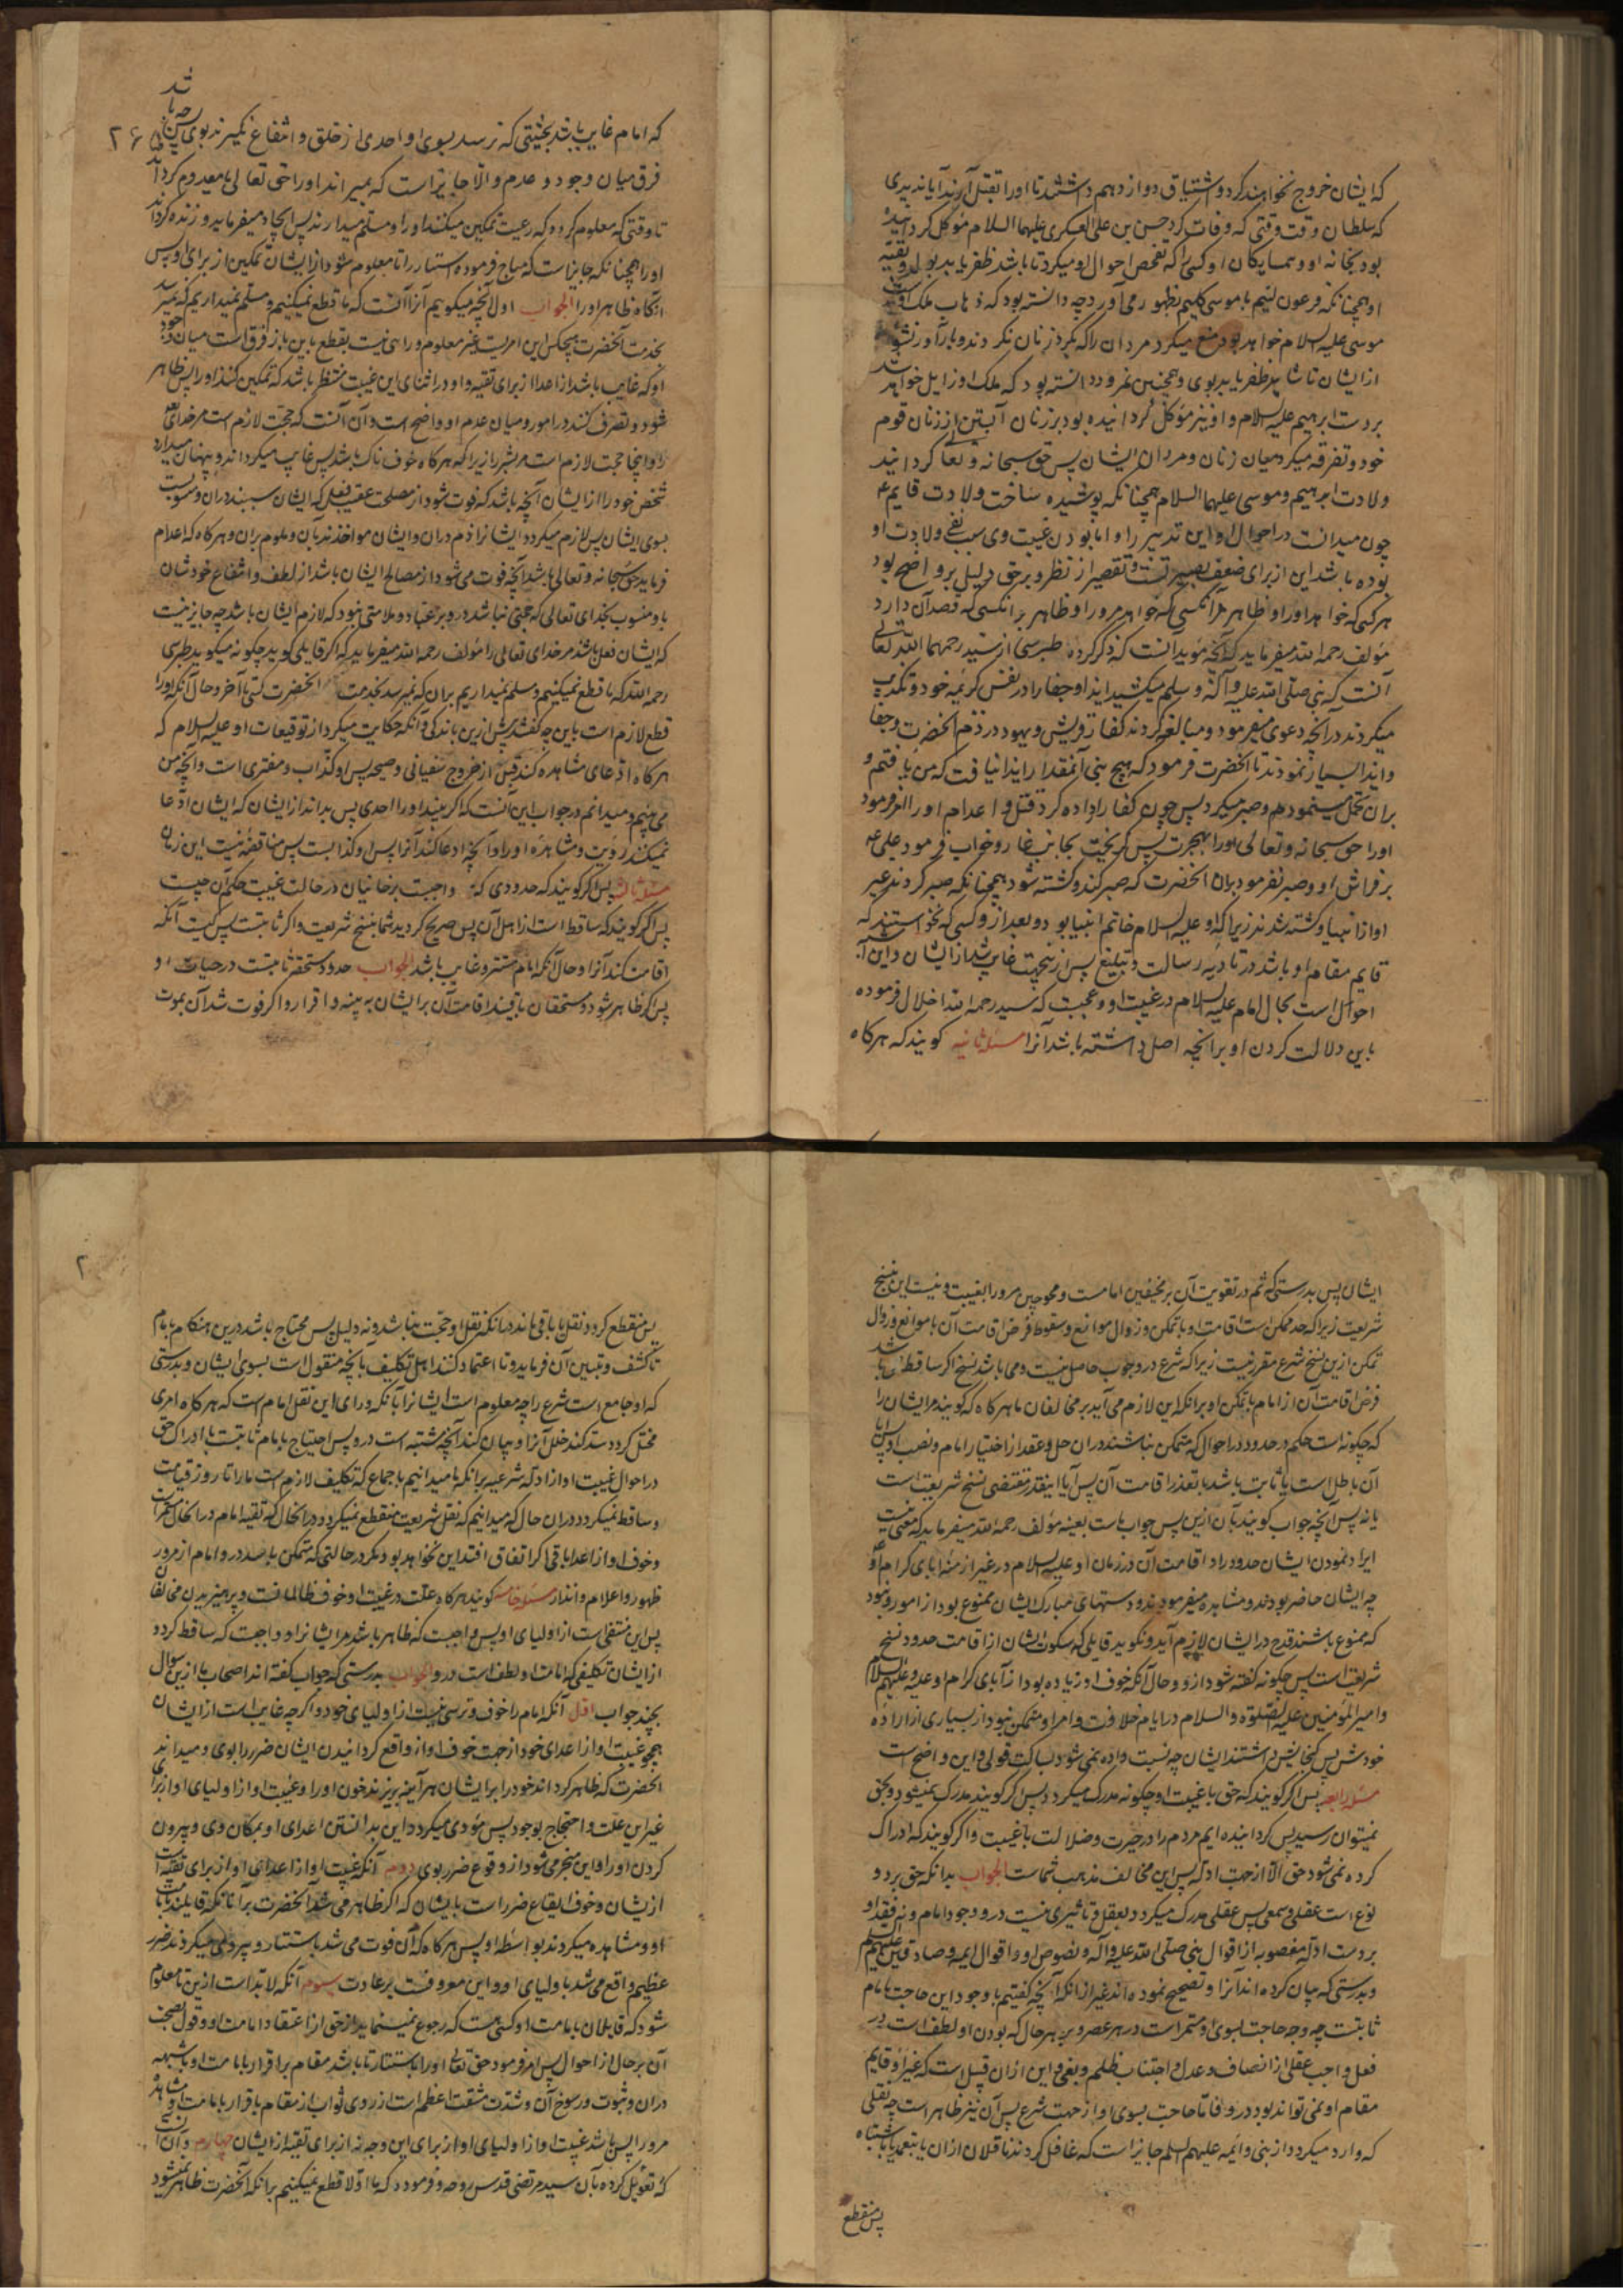 که ایشان خروج نخواهند کرد و اشتیاق دوازدهم داشتند تا او را بقتل آرند آیا ندیدی
که سلطان وقت وقتی که وفات کرد حسن بن علی العسکری علیهما السلام موکل گردانیده
بود بخانه او و همسایکان او کسی را که تفحص احوال او میکرد تا باشد ظفر یابد بولد و بقیه
او همچنانکه فرعون لئیم با موسی کلیم بظهور می آورد چه دانسته بود که ذهاب ملک او بدست
موسی علیه السلام خواهد بود منع میکرد مردان را که بکرد زنان نکردند و بار آور نشوند
از ایشان تا شاید ظفر یابد بوی و همچنین نمرود دانسته بود که ملک او زایل خواهد شد
بر دست ابرهیم علیه السلام و او نیز موکل گردانیده بود بر زنان آبستن از زنان قوم
خود و تفرقه میکرد میان زنان و مردان ایشان پس حق سبحانه و تعالی کردانید
ولادت ابرهیم و موسی علیهما السلام همچنانکه پوشیده ساخت ولادت قایم ع
چون میدانست در احوال او این تدبیر را و اما بودن غیبت وی سبب نفی ولادت او
بوده باشد این از برای ضعف بصیرتست و تقصیر از نظر و بر حق دلیل بر و اضح بود
هر کسی که خواهد او را و ظاهر هر آنکسی که خواهد مرو را و ظاهر بر آنکسی که قصد آن دارد
مولف رحمه الله میفرماید که آنچه موید آنست که ذکر کرده طبرسی از سید رحمهما الله تعالی
آنست که نبی صلی الله علیه و آله و سلم میکشید ایذا و جفا را در نفس کریمه خود و تکذیب
میکردند در آنچه دعوی میفرمود و مبالغه کردند کفار قریش و یهود در ذم آنحضرت و جفا
و ایذا بسیار نمودند تا آنحضرت فرمود که هیچ نبی آنمقدار ایذا نیافت که من یافتم و
بران تحمل مینمودم و صبر میکرد پس چون کفار اراده کرد قتل و اعدام او را امر فرمود
او را حق سبحانه و تعالی او را بهجرت پس گریخت بجانب غار و خواب فرمود علی ع
بر فراش او و صبر نفرمود بران آنحضرت که صبر کند و کشته شود همچنانکه صبر کردند غیر
او از انبیا و کشته شدند زیرا که او علیه السلام خاتم انبیا بود و بعد از و کسی که نخواستند که
قایم مقام او باشد در تادیه رسالت و تبلیغ پس ازینجهت غایب شد از ایشان و این
احوال است بحال امام علیه السلام در غیبت او و عجبست که سید رحمه الله اخلال فرموده
باین دلالت کردن او بر آنچه اصل داشته باشد آنرا مسئله ثانیه کویند که هرگاه
که امام غایب باشد بحیثیتی که نرسد بسوی او احدی از خلق و انتفاع نگیرند بوی پس چه باشد
فرق میان وجود و عدم و الا جایز است که بمیراند او را حق تعالی یا معدوم گرداند
تا وقتی که معلوم گردد که رعیت تمکین میکنند او را و مسلم میدارند پس ایجاد میفرماید و زنده گرداند
او را همچنانکه جایز است که مباح فرموده استتار را تا معلوم شود از ایشان تمکین از برای او پس
آنگاه ظاهر او را الجواب اول آنچه میکوییم آنرا آنست که ما قطع نمیکنیم و مسلم نمیداریم که نمیرسد
بخدمت آنحضرت هیچکس این امریست غیر معلوم و راهی نیست بقطع باین باز فرق است میان وجود
او که غایب باشد از اعدا از برای تقیه و او در اثنای این غیبت منتظر باشد که تمکین کنند او را پس ظاهر
شود و تصرف کند در امور و میان عدم او واضح است و آن آنست که حجت لازم است مر خدای
را و اینجا حجت لازم است مر بشر را زیرا که هرگاه خوفناک باشد پس غایب میکرداند و پنهان میدارد
شخص خود را از ایشان آنچه باشد که فوت شود از مصلحت عقیب فعلی که ایشان سببند دران و منسوبست
بسوی ایشان پس لازم میکردد ایشانرا ذم دران و ایشان مواخذند بآن و ملوم بران و هرگاه که اعدام
فرماید حق سبحانه و تعالی باشد آنچه فوت می شود از مصالح ایشان باشد از لطف و انتفاع خودشان
باو منسوب بخدای تعالی که حجتی نباشد درو بر عباد و ملامتی نبود که لازم ایشان باشد چه جایز نیست
که ایشان فعل باشد مر خدای تعالی را مولف رحمه الله میفرماید که اگر قایلی کوید چکونه میکوید طبرسی
رحمه الله که ما قطع نمیکنیم و مسلم نمیداریم بران که نمیرسد بخدمت آنحضرت کسی تا آخر و حال آنکه او را
قطع لازم است باین چه گفتند پیش ازین باندکی و آنکه حکایت میکرد از توقیعات او علیه السلام که
هرکاه ادعای مشاهده کند قبل از خروج سفیانی و صیحه پس او کذاب و مفتری است و آنچه من
می بینم و میدانم در جواب این آنست که اگر ببیند او را احدی پس بداند از ایشان که ایشان ادعا
نمیکنند رویت و مشاهده او را و آنچه ادعا کند آنرا پس او کذابست پس مناقضه نیست این زمان
مسئله ثالثه پس اگر کویند که حدودی که واجبست بر جانیان در حالت غیبت حکم آن چیست
پس اگر کویند که ساقط است از اهل آن پس صریح گردید شما بنسخ شریعت و اگر ثابتست پس کیست آنکه
اقامت کند آنرا و حال آنکه امام مستتر و غایب باشد الجواب حدود مستحقه ثابتست در حیات او
پس اگر ظاهر شود و مستحقان باقیند اقامت آن بر ایشان به بینه و اقرار و اگر فوت شد آن بموت
ایشان پس بدرستی که اثم در تفویت آن بر مخیفین امامست و محوجین مرو را بغیبت و نیست این نسخ
شریعت زیرا که حد ممکن است اقامت و با تمکن و زوال موانع و سقوط فرض اقامت آن با موانع و زوال
تمکن ازین نسخ شرع مقرر نیست زیرا که شرع در وجوب حاصل نیست و می باشد نسخ اگر ساقط باشد
فرض اقامت آن از امام با تمکن او برانکه این لازم می آید بر مخالفان ما هرکاه که کویند مر ایشان را
که چکونه است حکم در حدود در احوال که متمکن نباشند دران حل و عقد از اختیار امام و نصب او پس آیا
آن باطل است یا ثابت باشد با تعذر اقامت آن پس آیا اینقدر مقتضی نسخ شریعت است
یا نه پس آنچه جواب کویند بآن ازین پس جواب ماست بعینه مولف رحمه الله میفرماید که معنی نیست
ایراد نمودن ایشان حدود را و اقامت آن در زمان او علیه السلام در غیر ازمنه آبای کرام او
چه ایشان حاضر بودند و مشاهده میفرمودند و دستهای مبارک ایشان ممنوع بود از امور و بود
که ممنوع باشند قدح در ایشان لازم آید و نکوید قایلی که سکوت ایشان از اقامت حدود نسخ
شریعت است پس چکونه گفته شود ازو و حال آنکه خوف او زیاده بود از آبای کرام او علیه و علیهم السلام
و امیر المؤمنین علیه الصلوة و السلام در ایام خلافت و امر او متمکن نبود از بسیاری از اراده
خودش پس گنجایش داشتند ایشان چه نسبت داده نمی شود بساکت قولی و این واضح است
مسئله رابعه پس اگر کویند که حق با غیبت او چکونه مدرک میکردد پس اگر کویند مدرک نمیشود و بحق
نمیتوان رسید پس گردانیده ایم مردم را در حیرت و ضلالت با غیبت و اگر کویند که ادراک
کرده نمی شود حق الا از جهت ادله پس این مخالف مذهب شماست الجواب بدانکه حق بر دو
نوع است عقلی و سمعی پس عقلی مدرک میکردد بعقل و تاثیری نیست درو وجود امام و نه فقد او
بر دست ادله منصوبه از اقوال نبی صلی الله علیه و آله و نصوص او و اقوال ایمه و صادقین علیهم السلام
و بدرستی که بیان کرده اند آنرا و تصحیح نموده اند غیر از آنکه آنچه گفتیم با وجود این حاجت بامام
ثابتست چه وجه حاجت بسوی او مستمر است در هر عصر و بر هر حال که بودن او لطف است در
فعل واجب عقلی از انصاف و عدل و اجتناب ظلم و بغی و این از ان قبیل است که غیر او قایم
مقام او نمی تواند بود درو و اما حاجت بسوی او از جهت شرع پس آن نیز ظاهر است چه نقلی
که وارد میکردد از نبی و ایمه علیهم السلم جایز است که غافل کردند ناقلان از ان یا بتعمد یا باشتباه
پس منقطع
پس منقطع کردد نقل یا باقی ماند در آنکه نقل او حجت نباشد و نه دلیل پس محتاج باشد درین هنکام بامام
تا کشف و تبیین آن فرماید و تا اعتماد کنند اهل تکلیف بآنچه منقول است بسوی ایشان و بدرستی
که او جامع است شرع را چه معلوم است ایشانرا بآنکه ورای این نقل امام است که هرکاه امری
مختل کردد سد کند خلل آنرا و بیان کند آنچه مشتبه است درو پس احتیاج بامام ثابتست با ادراک حق
در احوال غیبت او از ادله شرعیه برانکه ما میدانیم باجماع که تکلیف لازم است ما را تا روز قیامت
و ساقط نمیکردد دران حال که میدانیم که نقل شریعت منقطع نمیکردد در انحال که تقیه امام در انحال مستمر است
و خوف او از اعدا باقی اگر اتفاق افتد این نخواهد بود مکر در حالتی که متمکن باشد درو امام از مرور
ظهور و اعلام و انذار مسئله خامسه کویند هرکاه علت در غیبت او خوف ظالمانست و پرهیزیدن مخالفان
پس این منتفی است از اولیای او پس واجبست که ظاهر باشد مر ایشانرا و واجبست که ساقط کردد
از ایشان تکلیفی که امامت او لطف است درو الجواب بدرستی که جواب گفته اند اصحاب ما ازین سوال
بچند جواب اول آنکه امام را خوف و ترسی نیست از اولیای خود و اگر چه غایب است از ایشان
همچو غیبت او از اعدای خود از جهت خوف او از واقع گردانیدن ایشان ضرر را بوی و میداند
آنحضرت که ظاهر گرداند خود را بر ایشان هر آینه بریزند خون او را و غیبت او از اولیای او از برای
غیر این علت و احتجاج بوجود پس مؤدی میکردد این بدانستن اعدای او بمکان وی و بیرون
کردن او را و این منجر می شود از وقوع ضرر بوی دوم آنکه غیبت او از اعدای او از برای تقیه است
از یشان و خوف ایقاع ضرر است بایشان که اگر ظاهر می شد آنحضرت بر آنانکه قایلند بامامت
او و مشاهده میکردند بواسطه او پس هرکاه که آن فوت می شد باستتار و پیروی میکردند ضرر
عظیم واقع می شد باولیای او و این معروفست بر عادت سوم آنکه لابد است ازین تا معلوم
شود که قایلان بامامت او کسی هست که رجوع نمینماید از حق از اعتقاد امامت او و قول بصحت
آن بر حال از احوال پس امر فرمود حق تعالی او را باستتار تا باشد مقام بر اقرار بامامت او با شبهه
دران و ثبوت و رسوخ آن و شدت مشقت اعظم است از روی ثواب از مقام باقرار بامامت او و مشاهده
مرو را پس باشد غیبت او از اولیای او از برای این وجه نه از برای تقیه از ایشان چهارم و آن آنست
که تعویل کرده بآن سید مرتضی قدس روحه و فرمود که ما اولا قطع نمیکنیم برانکه آنحضرت ظاهر نمیشود